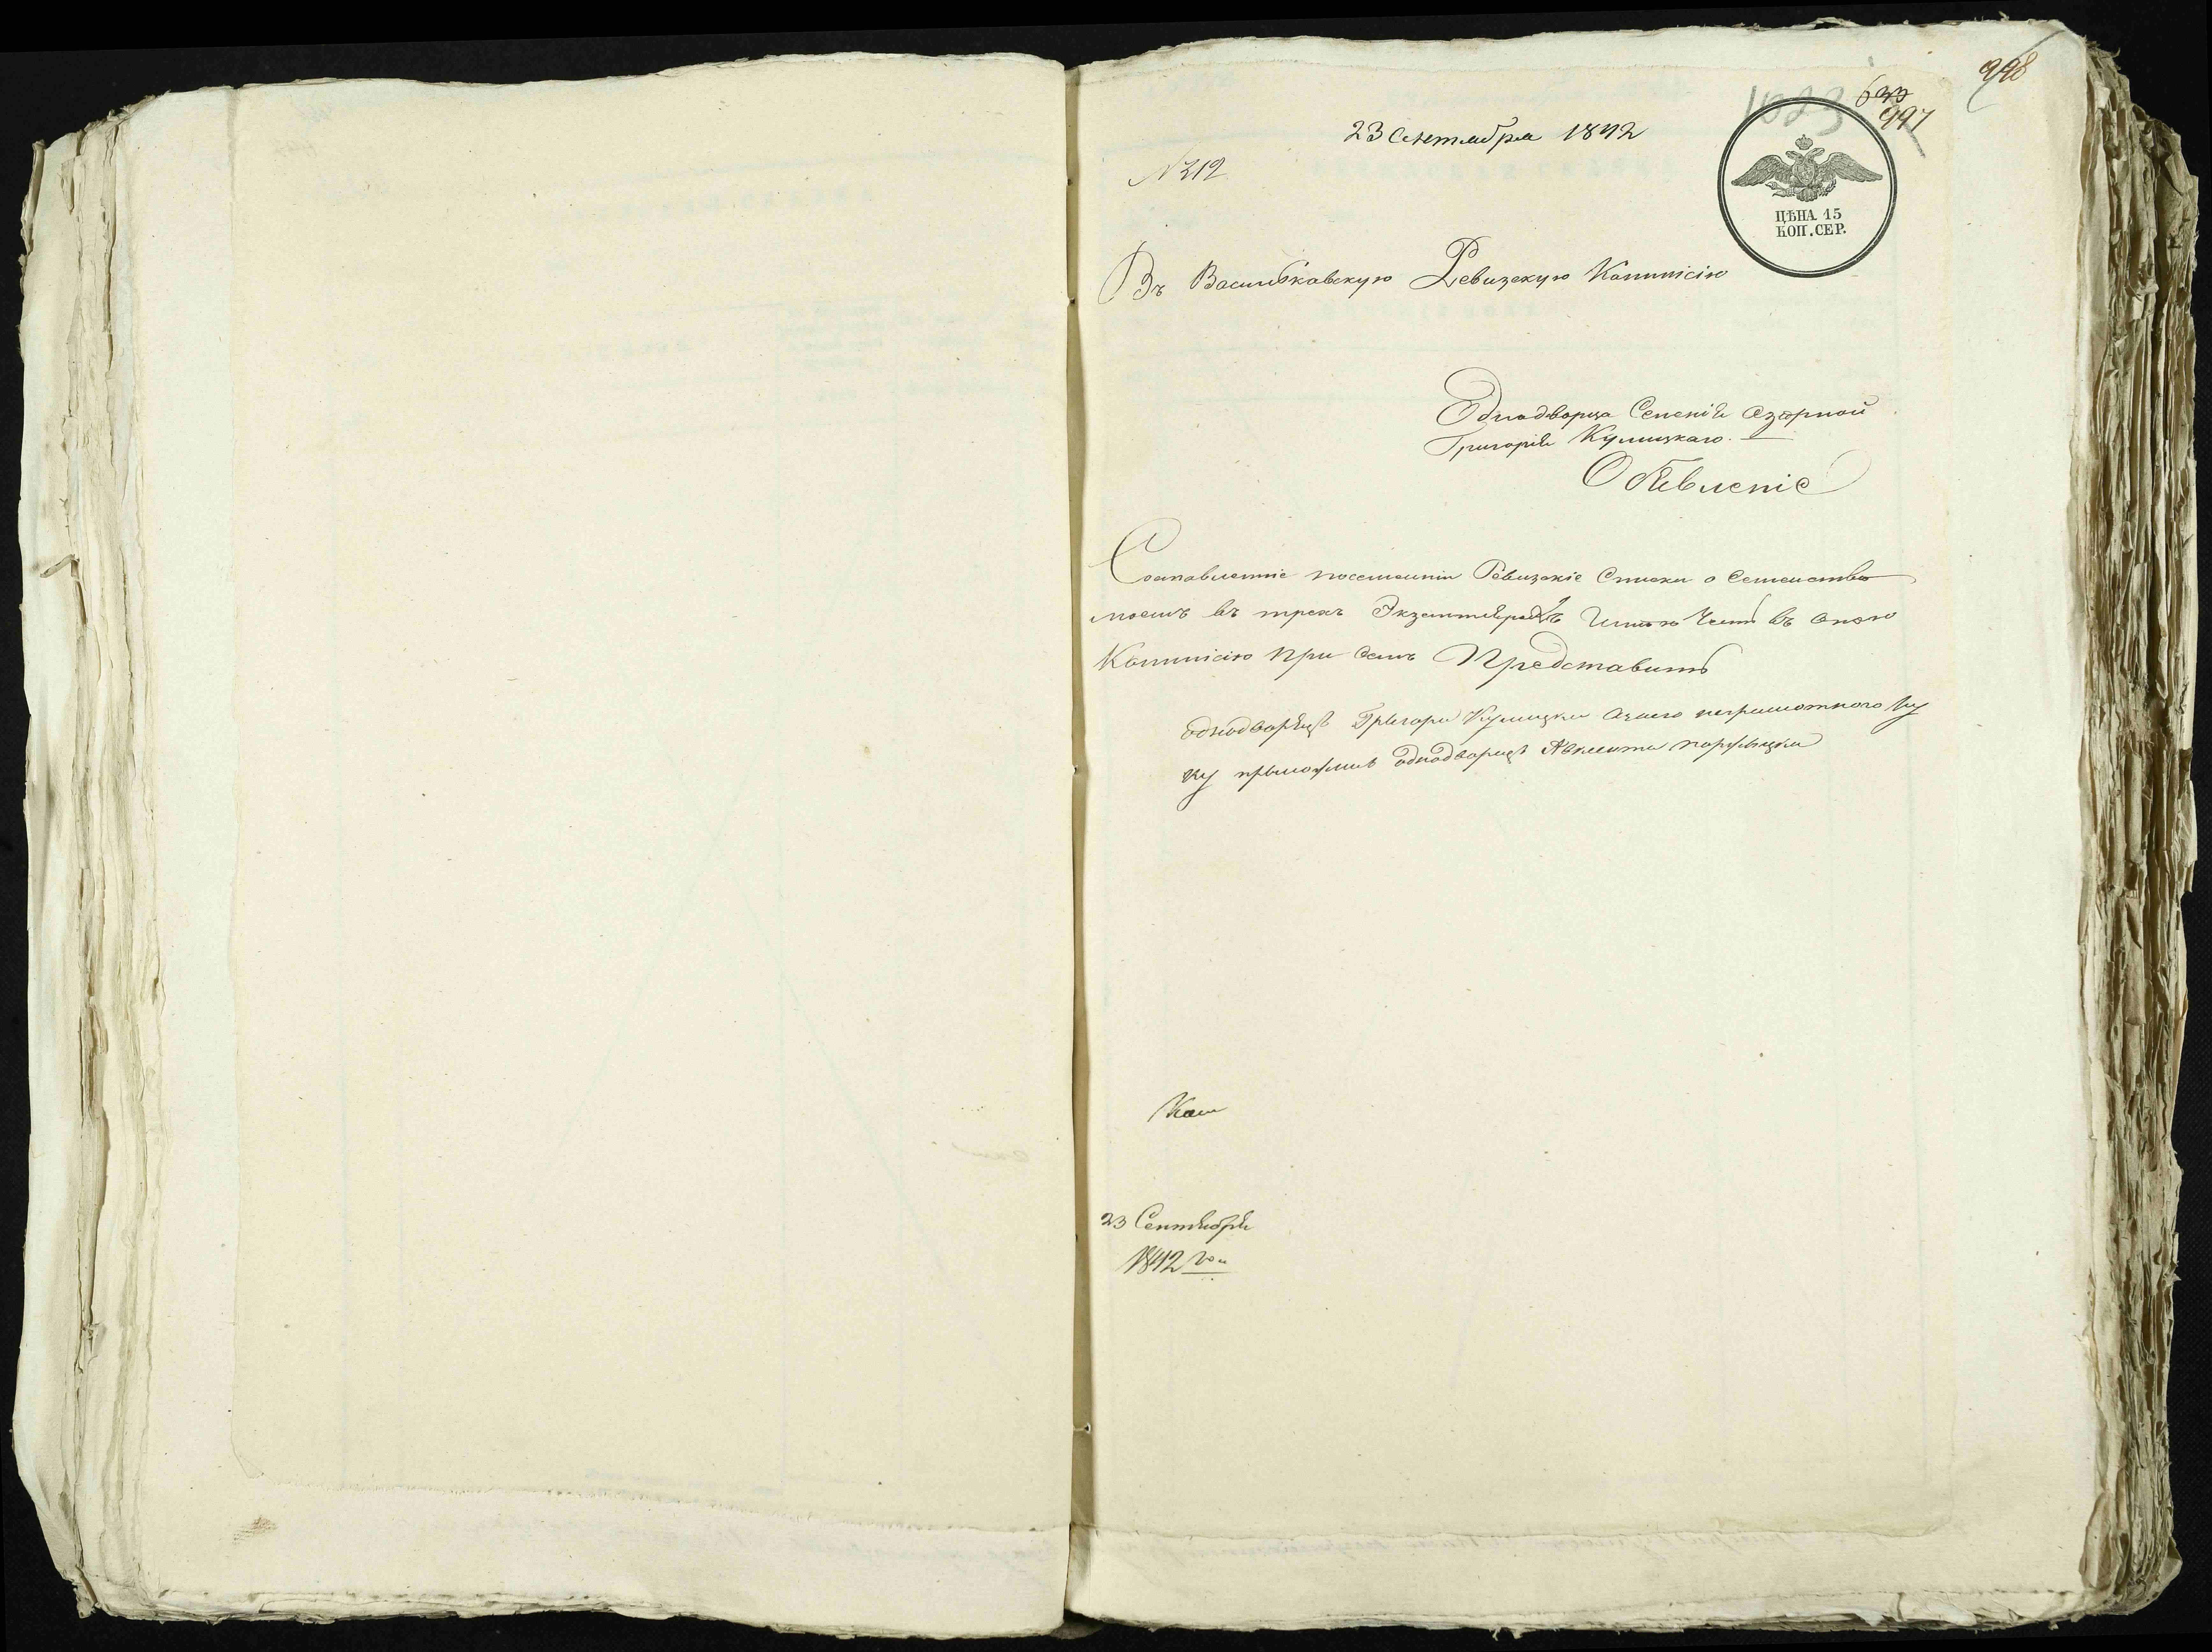 998
1023
997
23 Сентября 1842
№ 212
ЦѢНА 15
КОП. СЕР.
Въ Васильковскую Ревизскую Коммисію
Однодворца Селенія Озерной
Григорія Кулицкаго.
Обявленіе
Составленніе Ревизскіе Списки о Семействе
моемъ въ трехъ Экземплярахъ Имѣю Честь въ оную
Коммисію при семъ Представить
однодворецъ Грыгори Кулицки азаего неграмотного ру
ку прыложилъ однодворецъ
23 Сентября
1842 Года